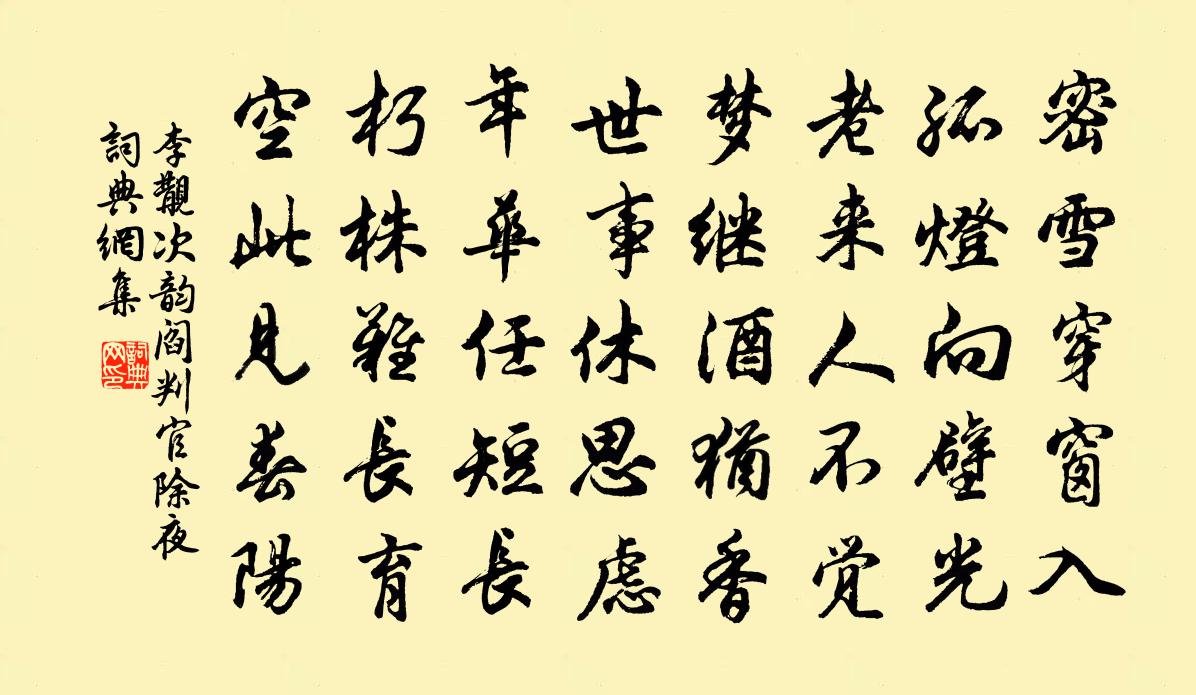 密雪穿窗入
孤燈向壁光
老来人不觉
梦继酒猶香
世事休思虑
年華任短長
朽株難長育
空此見春陽
李觏次韵阎判官除夜
詞典網集
詞典網印